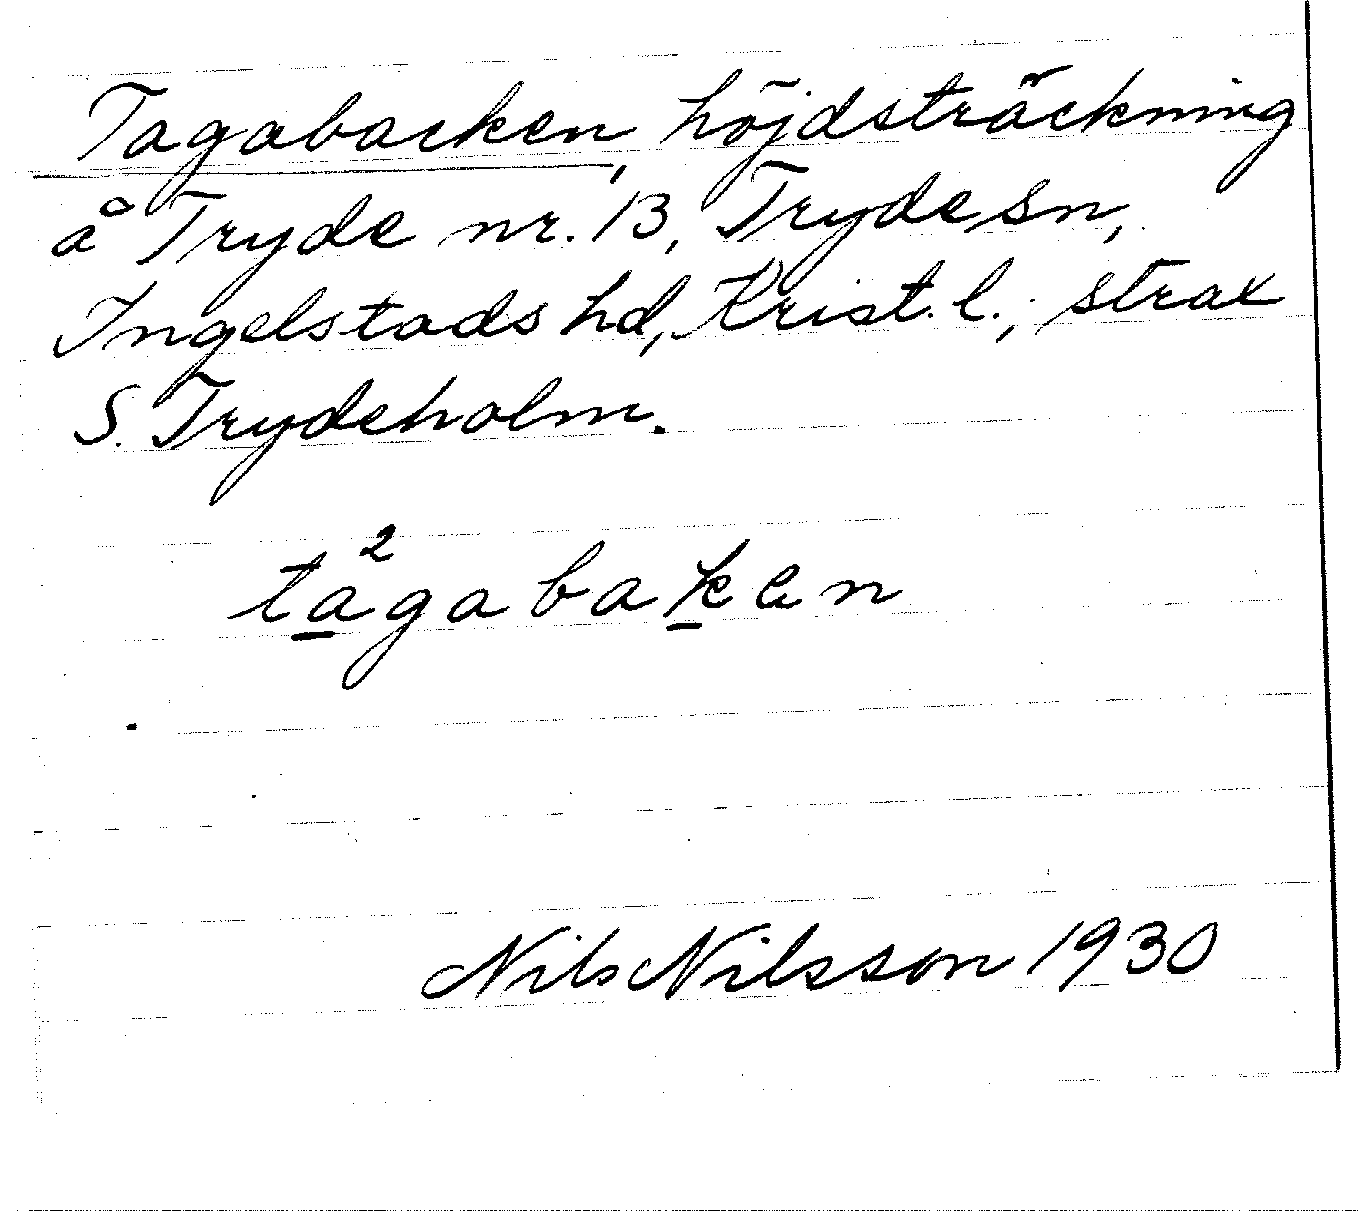 Tagabacken, höjdsträckning
å Tryde nr. 13, Tryde sn,
Ingelstads hd, Krist. l.; strax
S. Trydeholm.
ta²gabaken
Nils Nilsson 1930